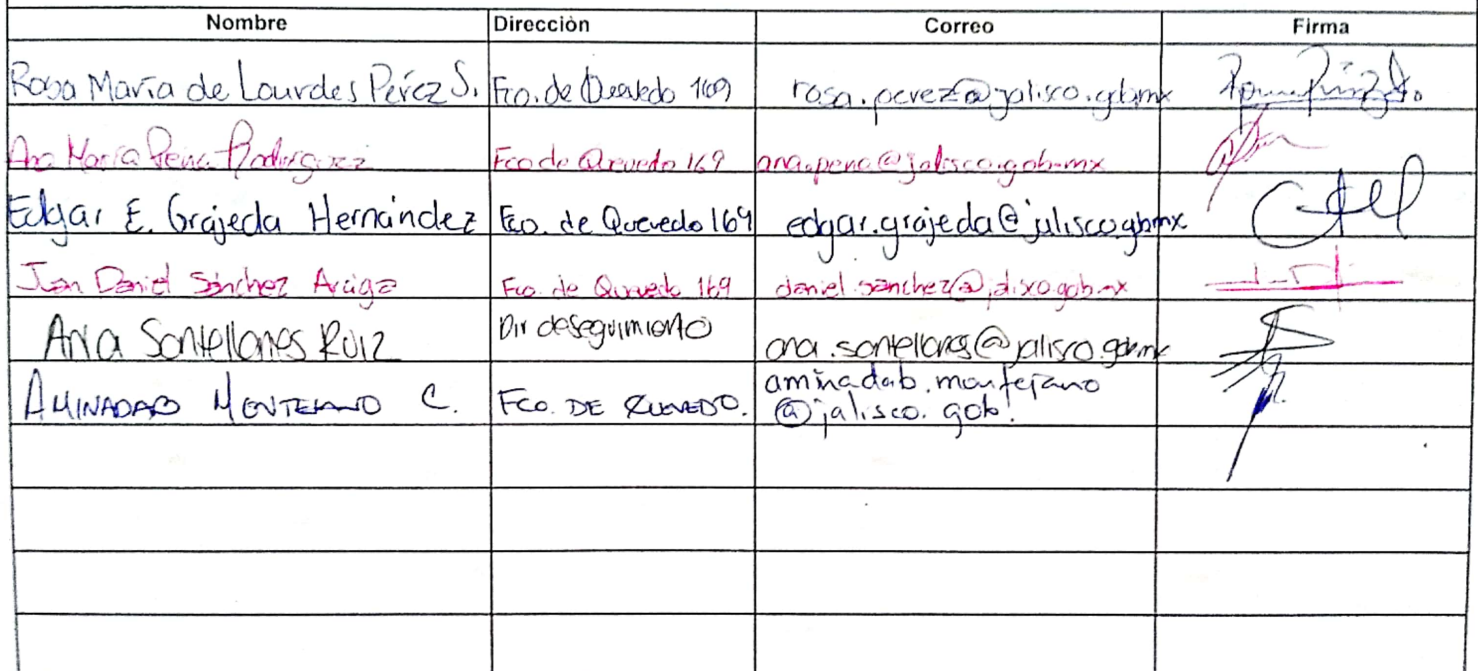 Nombre Dirección Correo Firma
Rosa María de Lourdes Pérez S. Fco. de Quevedo 169 rosa.perez@jalisco.gob.mx
Ana María Peña Rodríguez Fco de Quevedo 169 ana.pena@jalisco.gob.mx
Edgar E. Grajeda Hernández Fco. de Quevedo 169 edgar.grajeda@jalisco.gob.mx
Juan Daniel Sánchez Arciga Fco. de Quevedo 169 daniel.sanchez@jalisco.gob.mx
Ana Santellanes Ruiz Dir de seguimiento ana.santellanes@jalisco.gob.mx
AMINADAB MONTEJANO C. FCO. DE QUEVEDO. aminadab.montejano
@jalisco.gob.